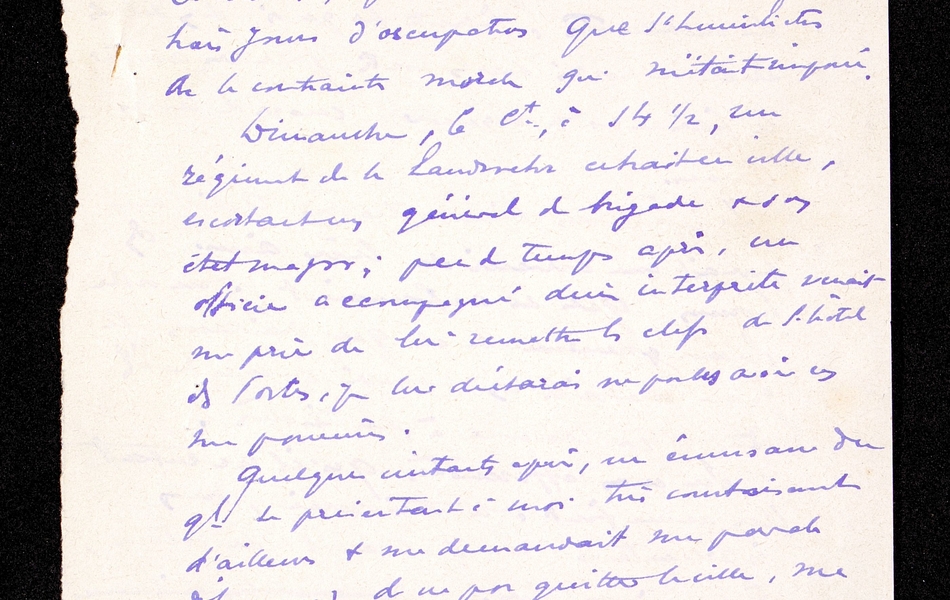 trois jours d'occupation que l'humiliation
de la contrainte morale qui m'était imposée.
Dimanche, le Ct, à 14 1/2, un
régiment de la Landwehr entrait en ville,
escortant un général de brigade & son
état major; peu d temps après, un
officier accompagné d'un interprète venait
me prier de lui remettre les clefs de l'hôtel
des Postes, je lui déclarai ne pas les avoir en
mon pouvoir.
Quelques instants après, un émissaire du
gl se présentait à moi très courtoisement
d'ailleurs & me demandait ma parole
d ne pas quitter la ville, ma